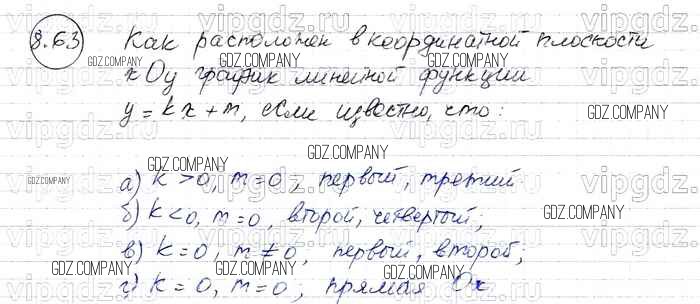 8.63 Как расположен в координатной плоскости
xOy график линейной функции
y = kx + m, если известно, что:
а) k > 0, m = 0, первый, третий
б) k < 0, m = 0, второй, четвертый;
в) k = 0, m ≠ 0, первый, второй;
г) k = 0, m = 0; прямая Ox
vipgdz.com
GDZ.COMPANY